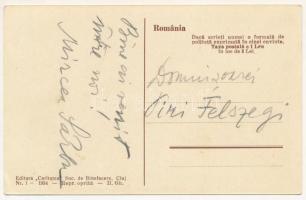 România
Dacă scrieți numai o formulă de
politeță exprimată în cinci cuvinte,
Taxa poștală e 1 Leu
în loc de 3 Lei.
Bine ai venit
între noi!
Mircea
Domnișoarei
Viri Felszegi
Editura „Caritatea” Soc. de Binefacere, Cluj
Nr. 1 — 1934 — Repr. oprită —